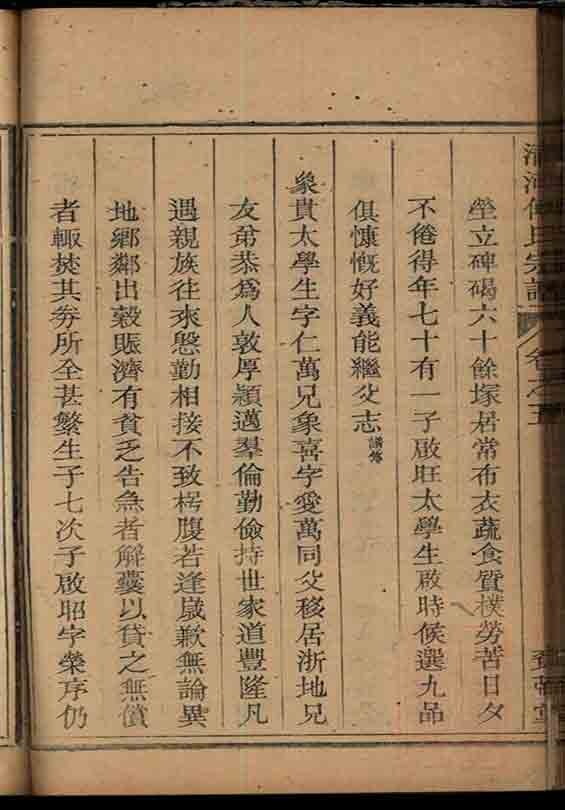 清河傅氏宗譜 卷之五
塋立碑碣六十餘塚居常布衣蔬食質樸勞苦日夕
不倦得年七十有一子啟旺太學生啟時候選九品
俱慷慨好義能繼父志譜傳
象貴太學生字仁萬兄象喜字愛萬同父移居浙地兄
友弟恭爲人敦厚穎邁羣倫勤儉持世家道豐隆凡
遇親族往來慇勤相接不致枵腹若逢歲歉無論異
地鄉鄰出穀賑濟有貧乏告急者解囊以貸之無償
者輙焚其劵所全甚繁生子七次子啟昭字榮序仍